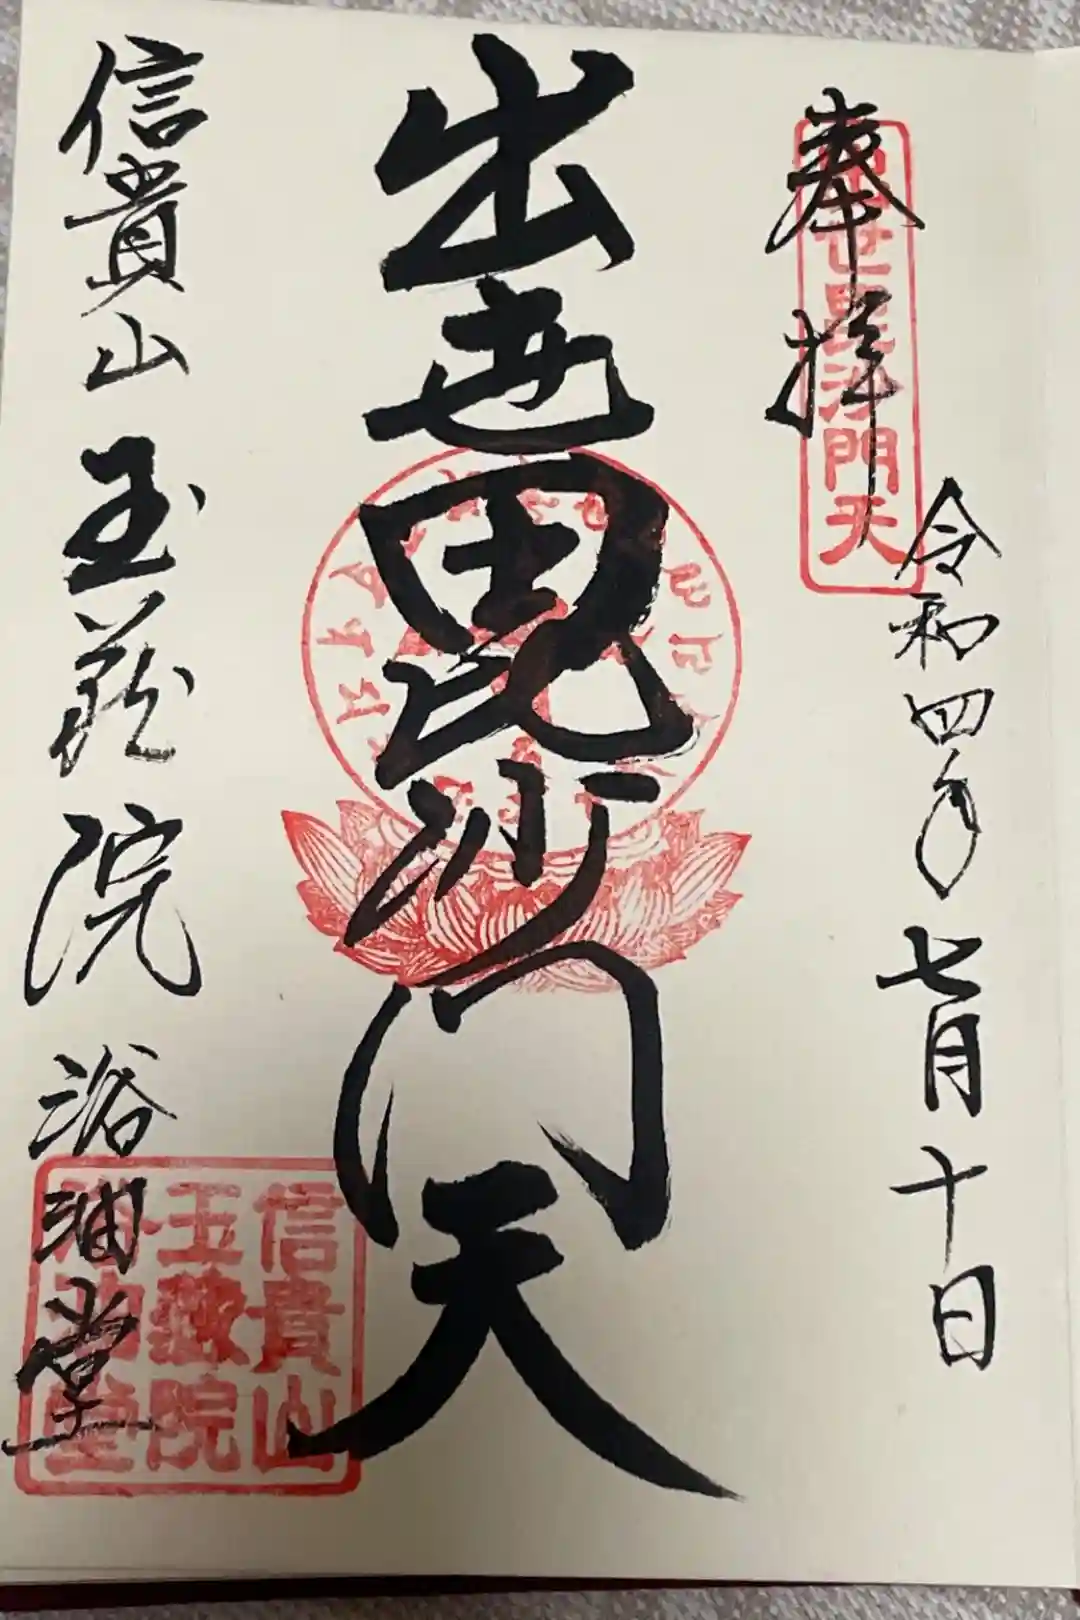 奉拝
出世毘沙門天
令和四年七月十日
出世毘沙門天
信貴山 玉蔵院 浴油堂
信貴山
玉蔵院
浴油堂